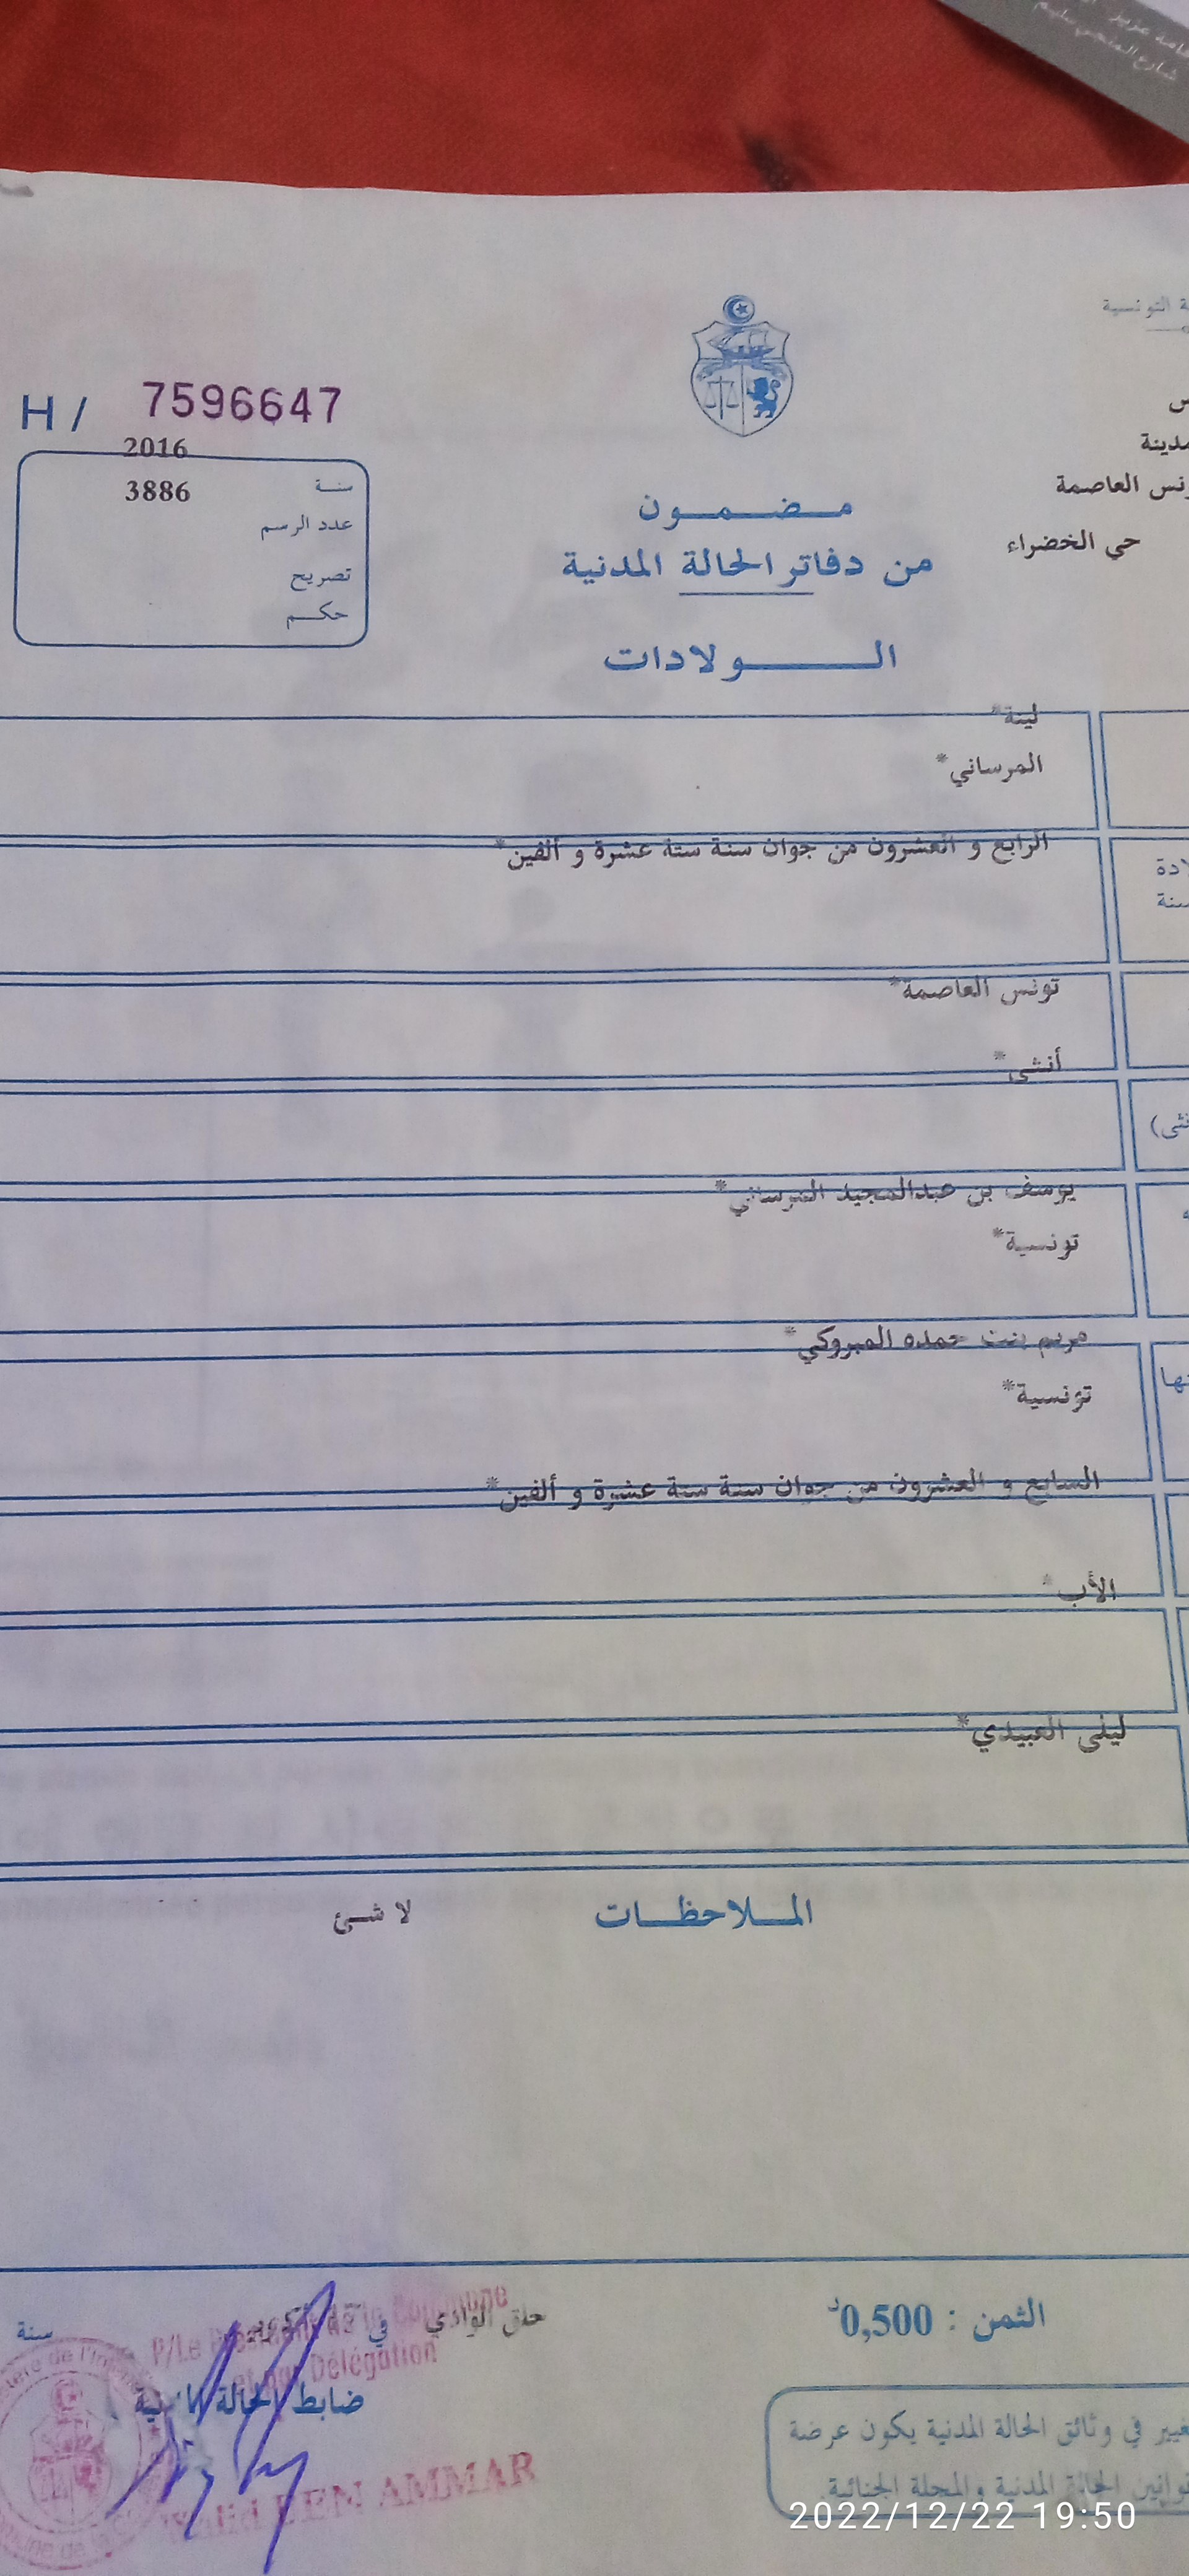 شارع المنجي سليم
التونسية
H / 7596647
2016
سنة
3886
عدد الرسم
تصريح
حكم
العاصمة
حي الخضراء
مضمون
من دفاتر الحالة المدنية
الولادات
لينة*
المرساني*
الرابع و العشرون من جوان سنة ستة عشرة و ألفين*
تونس العاصمة*
أنثى*
يوسف بن عبدالمجيد المرساني*
تونسية*
مريم بنت حمده المبروكي*
تونسية*
السابع و العشرون من جوان سنة ستة عشرة و ألفين*
الأب*
ليلى العبيدي*
الملاحظات
لا شئ
الثمن : 0,500د
حلق الوادي في
سنة
P/Le Président de la Commune
et par Délégation
ضابط الحالة المدنية
Walid BEN AMMAR
في وثائق الحالة المدنية يكون عرضة
الحالة المدنية والمجلة الجنائية
2022/12/22 19:50